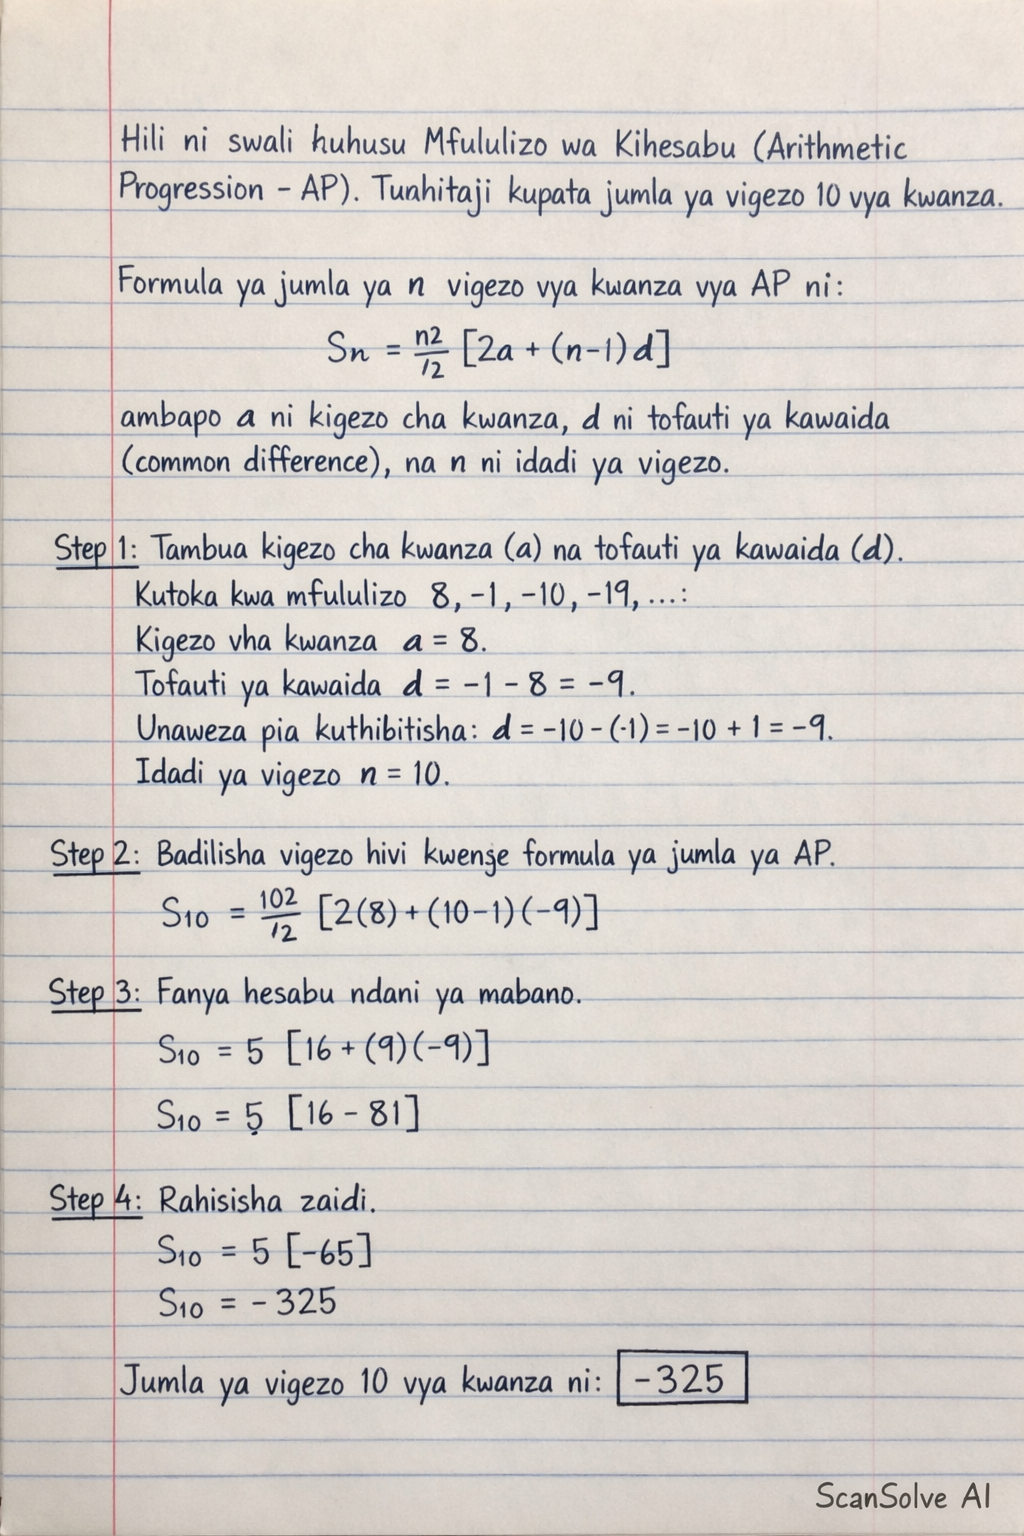 Hili ni swali huhusu Mfululizo wa Kihesabu (Arithmetic
Progression - AP). Tunhitaji kupata jumla ya vigezo 10 vya kwanza.
Formula ya jumla ya n vigezo vya kwanza vya AP ni:
Sn = n2/12 [2a + (n-1)d]
ambapo a ni kigezo cha kwanza, d ni tofauti ya kawaida
(common difference), na n ni idadi ya vigezo.
Step 1: Tambua kigezo cha kwanza (a) na tofauti ya kawaida (d).
Kutoka kwa mfululizo 8, -1, -10, -19, ...:
Kigezo vha kwanza a = 8.
Tofauti ya kawaida d = -1 - 8 = -9.
Unaweza pia kuthibitisha: d = -10 - (-1) = -10 + 1 = -9.
Idadi ya vigezo n = 10.
Step 2: Badilisha vigezo hivi kwenşe formula ya jumla ya AP.
S10 = 102/12 [2(8) + (10-1)(-9)]
Step 3: Fanya hesabu ndani ya mabano.
S10 = 5 [16 + (9)(-9)]
S10 = 5 [16 - 81]
Step 4: Rahisisha zaidi.
S10 = 5 [-65]
S10 = - 325
Jumla ya vigezo 10 vya kwanza ni: -325
ScanSolve AI